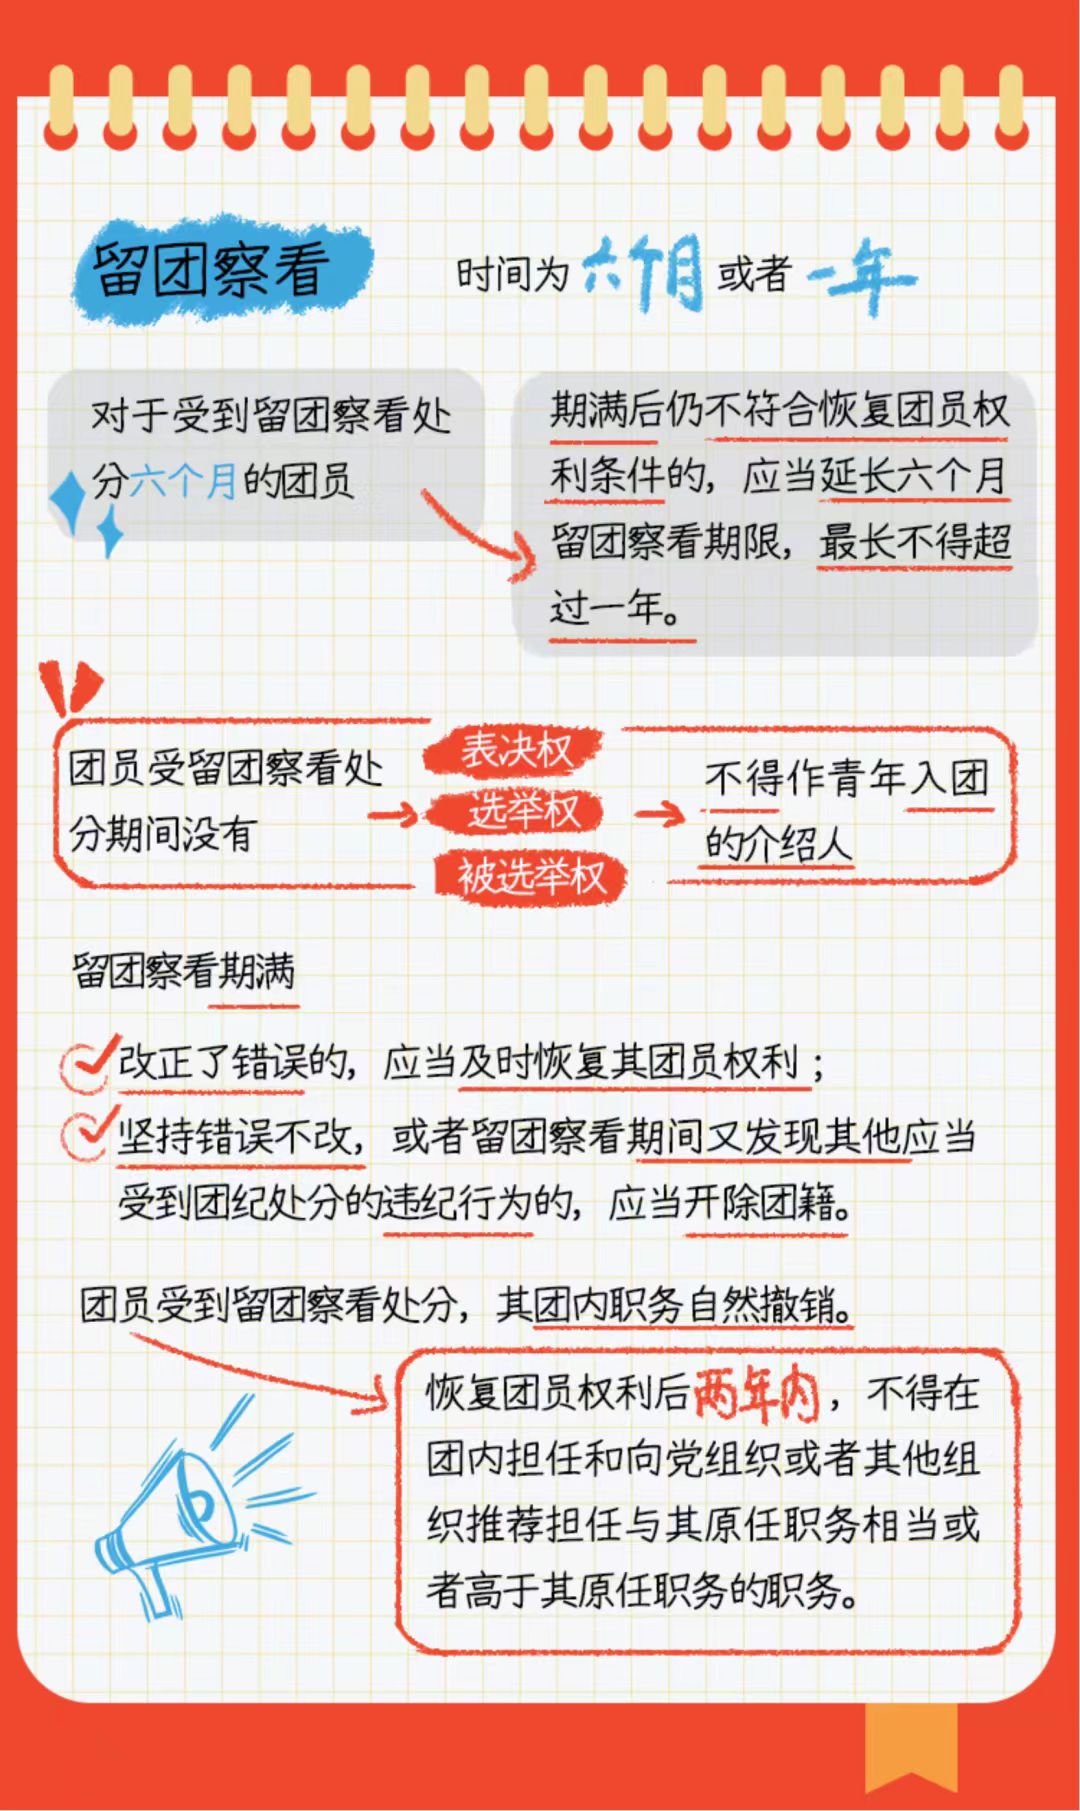 留团察看
时间为六个月或者一年
对于受到留团察看处
分六个月的团员
期满后仍不符合恢复团员权
利条件的，应当延长六个月
留团察看期限，最长不得超
过一年。
团员受留团察看处
分期间没有
表决权
选举权
被选举权
不得作青年入团
的介绍人
留团察看期满
改正了错误的，应当及时恢复其团员权利；
坚持错误不改，或者留团察看期间又发现其他应当
受到团纪处分的违纪行为的，应当开除团籍。
团员受到留团察看处分，其团内职务自然撤销。
恢复团员权利后两年内，不得在
团内担任和向党组织或者其他组
织推荐担任与其原任职务相当或
者高于其原任职务的职务。